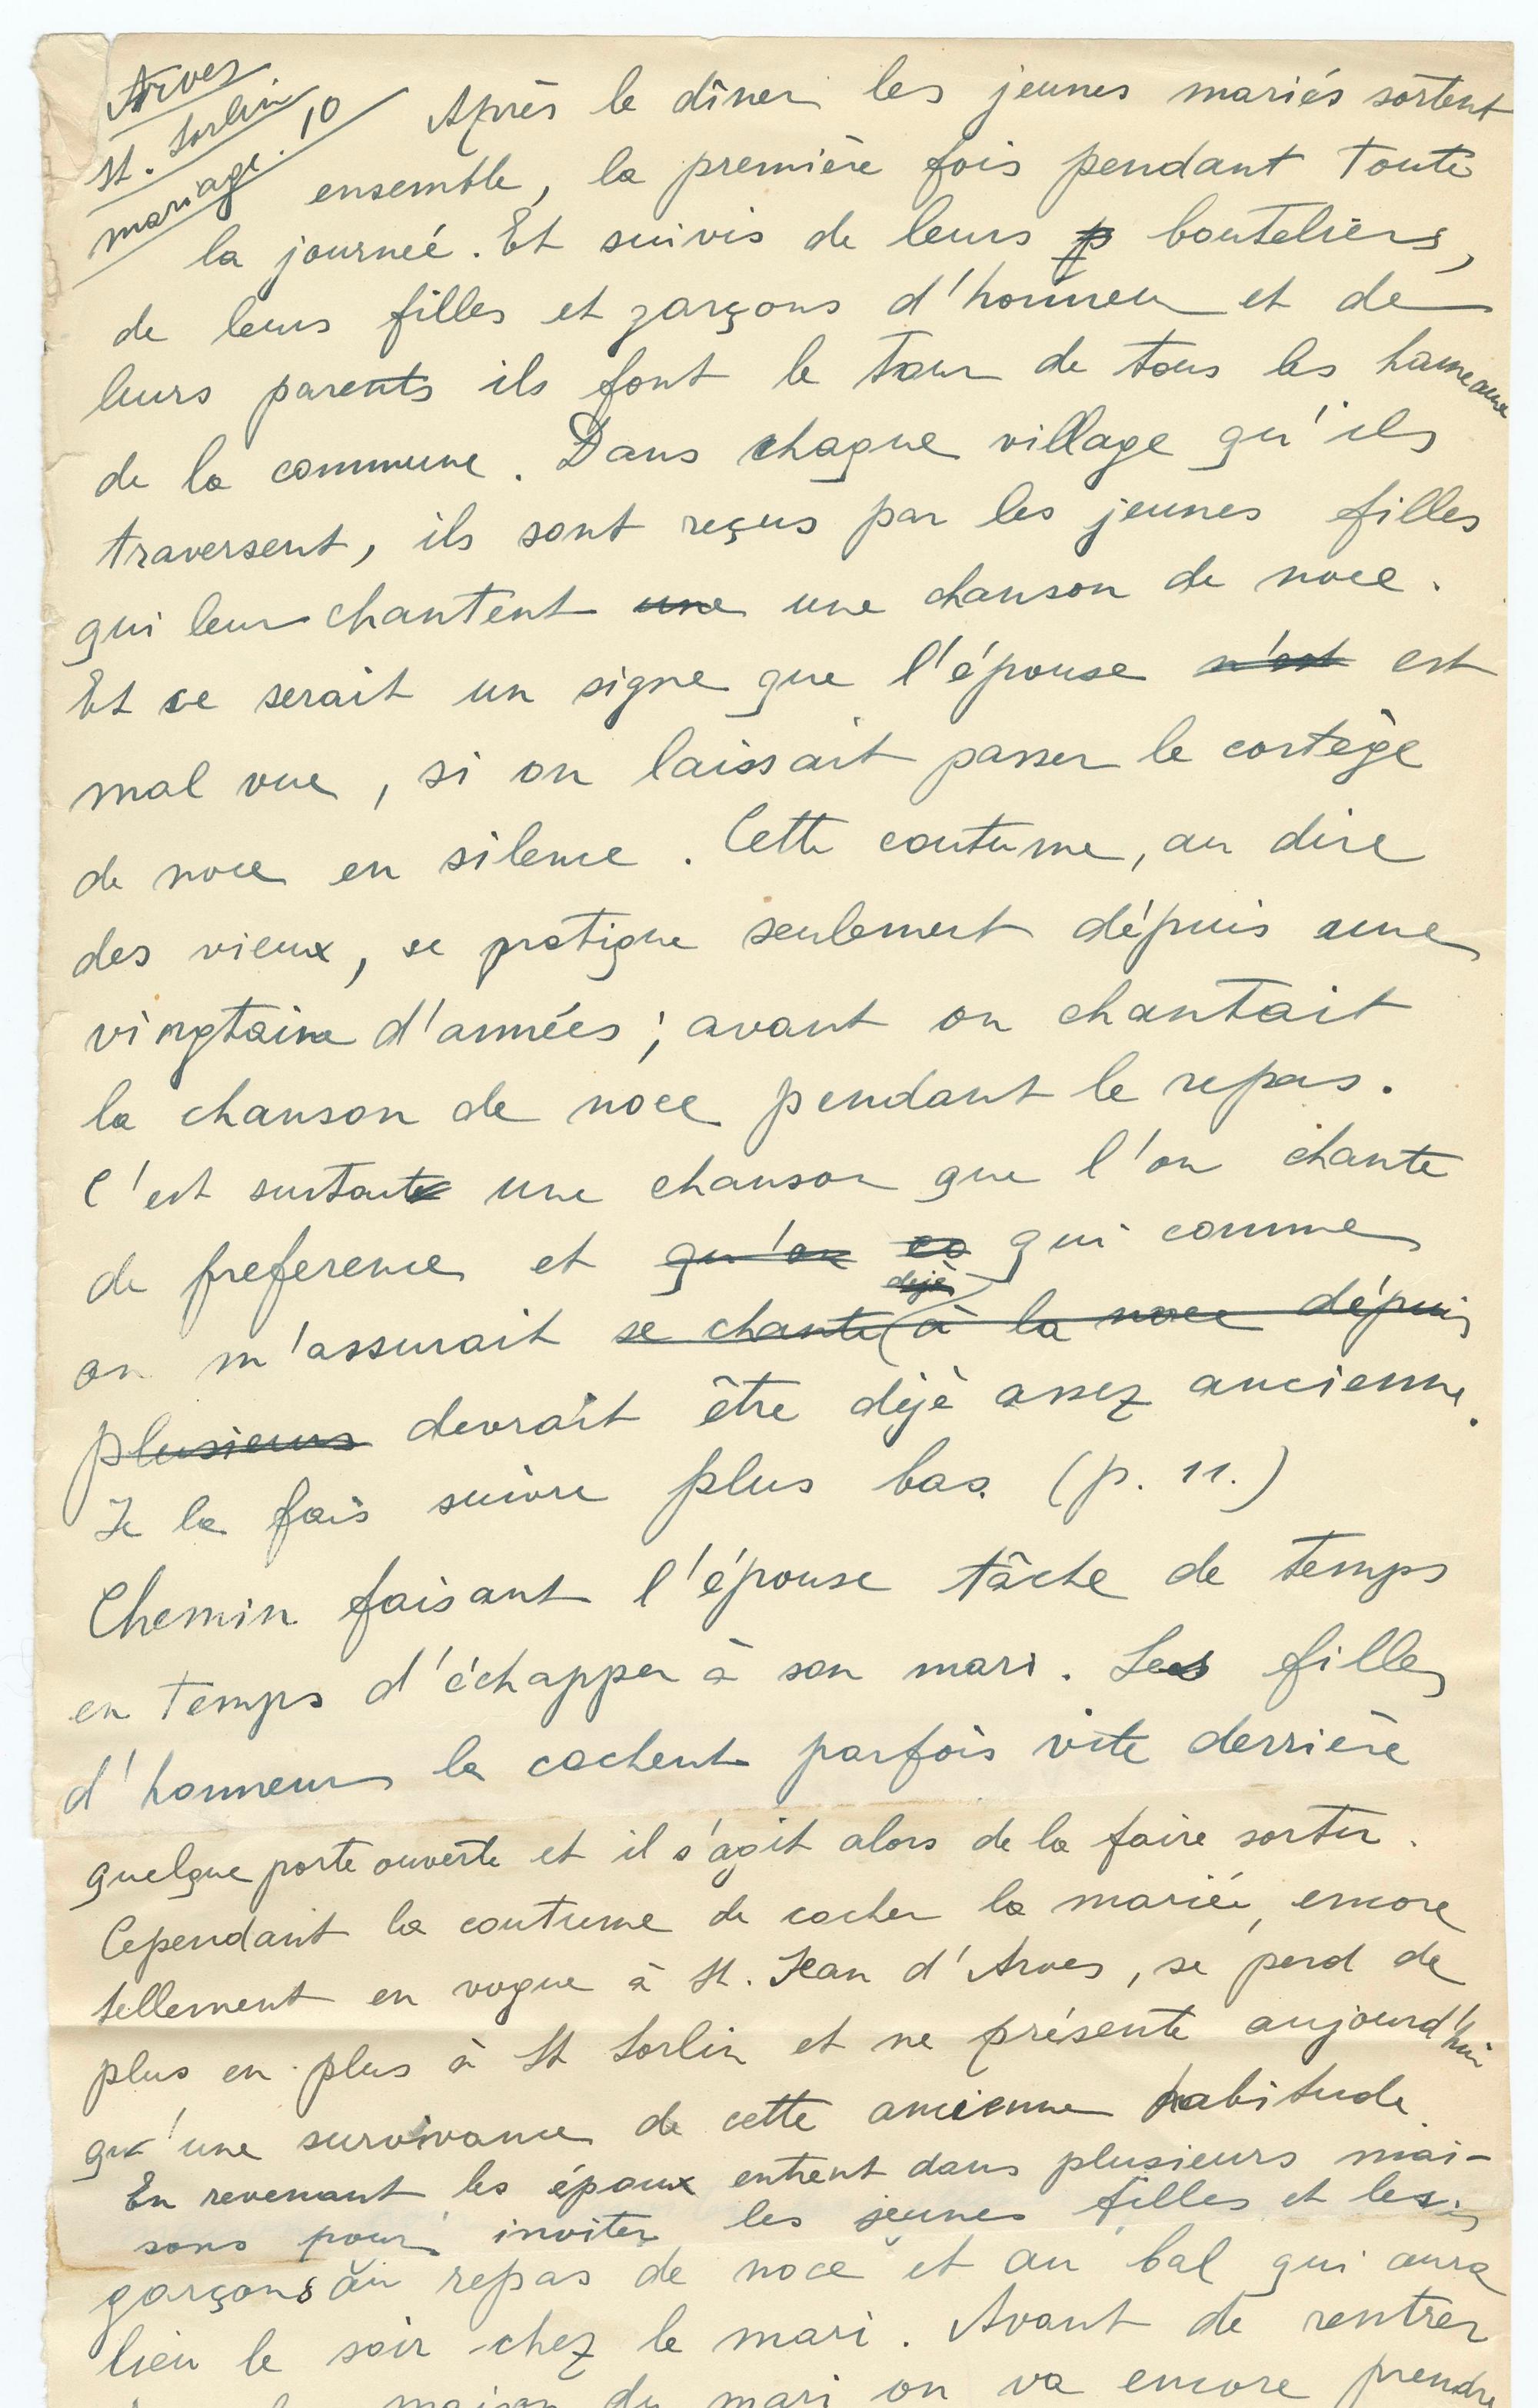 Arves
St. Sorlin
mariage. 10
Après le dîner les jeunes mariés sortent
ensemble, la première fois pendant toute
la journeé. Et suivis de leurs p bouteliers,
de leurs filles et garçons d'honneur et de
leurs parents ils font le tour de tous les hameaux
de la commune. Dans chaque village qu'ils
traversent, ils sont reçus par les jeunes filles
qui leur chantent une une chanson de noce.
Et ce serait un signe que l'épouse n'est est
mal vue, si on laissait passer le cortège
de noce en silence. Cette coutume, au dire
des vieux, se pratique seulement dépuis une
vingtaine d'années; avant on chantait
la chanson de noce pendant le repas.
C'est surtout une chanson que l'on chante
de preference et qu'on co qui comme
déjà
on m'assurait se chante à la noce dépuis
plusieurs devrait être déjè assez ancienne.
Je la fais suivre plus bas. (p. 11.)
Chemin faisant l'épouse tâche de temps
en temps d'échapper à son mari. Les filles
d'honneur la cachent parfois vite derrière
quelque porte ouverte et il s'agit alors de la faire sortir.
Cependant la coutume de cacher la mariée, encore
tellement en vogue à St. Jean d'Arves, se perd de
plus en plus à St Sorlin et ne présente aujourd'hui
qu'une survivance de cette ancienne habitude.
En revenant les époux entrent dans plusieurs mai-
sons pour inviter les jeunes filles et les
garçons au repas de noce et au bal qui aura
lieu le soir chez le mari. Avant de rentrer
maison du mari on va encore prendre